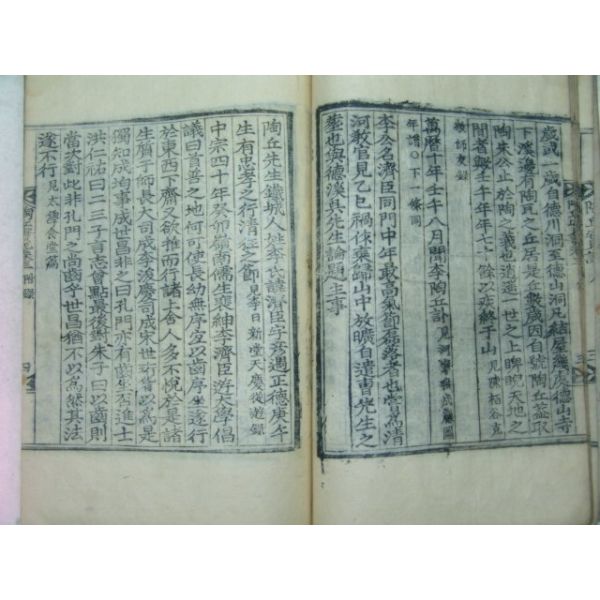 歲或一歲自德川洞至德山洞凡結屋幾處德山寺
下殘邊有陶瓦之丘居是丘數歲因自號陶丘盖取
陶朱公止於陶之義也逍遙一世之上睥睨天地之
間者數 壬午年年七十餘以疾終于山
敬師友錄
萬曆十年壬午八月聞李陶丘訃
年譜〇下一條同
李公名濟臣同門中年最高氣節磊落者也嘗爲淸
河敎官見乙巳禍作棄歸山中放曠自遣曺先生之
葬也與德溪吳先生論題主事
陶丘先生鐵城人姓李氏諱濟臣字彥遇正德庚午
生有忠孝之行淸狂之節見李日新堂天慶從遊錄
中宗四十年癸卯嶺南儒生裵紳李濟臣遊太學倡
議曰首善之地何可使長幼無序宜以齒序坐遂行
於東西下齋又欲推而行諸上舍人多不悅於是諸
生質于師長大司成宋世珩皆以爲是
獨知成均事成世昌非之曰孔門亦有齒坐否進士
洪仁祐曰二三子言志曾點最後與朱子曰以齒則
當次對此非孔門之尙齒乎世昌猶不以爲然其法
遂不行
附錄
四